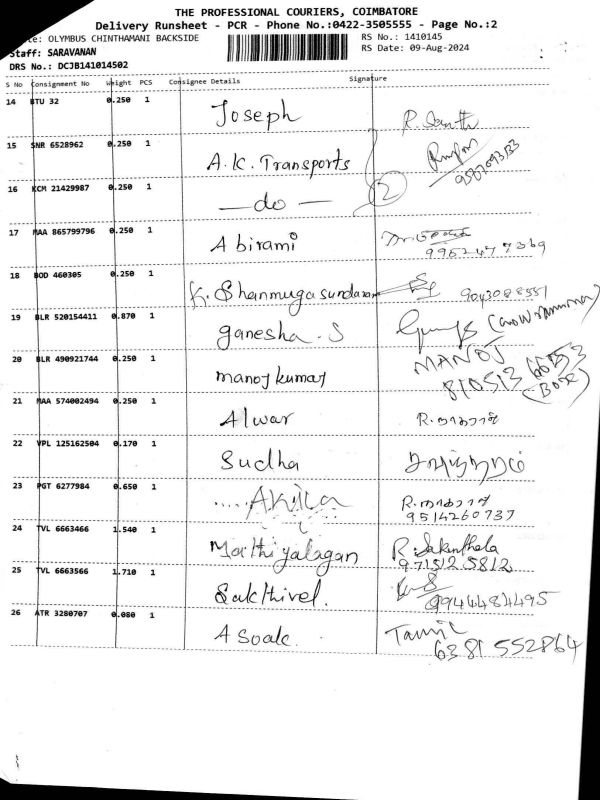 THE PROFESSIONAL COURIERS, COIMBATORE
Delivery Runsheet - PCR - Phone No.:0422-3505555 - Page No.:2
OLYMBUS CHINTHAMANI BACKSIDE RS No.: 1410145
Staff: SARAVANAN RS Date: 09-Aug-2024
DRS No.: DCJB141014502
S No Consignment No Weight PCS Consignee Details Signature
14 BTU 32 0.250 1 Joseph R. Santh
15 SNR 6528962 0.250 1 A.K. Transports
16 KCM 21429987 0.250 1 —do— 2
17 MAA 865799796 0.250 1 Abirami
18 BOD 460305 0.250 1 K. Shanmugasundaram 9043088551
19 BLR 520154411 0.870 1 ganesha.S
20 BLR 490921744 0.250 1 manoj kumar MANOJ
21 MAA 574002494 0.250 1 Alwar
22 VPL 125162504 0.170 1 Sudha
23 PGT 6277984 0.650 1 Akila
9514260737
24 TVL 6663466 1.540 1 Mathiyalagan R. Sakunthala
9715125812
25 TVL 6663566 1.710 1 Sakthivel.
9944484495
26 ATR 3280707 0.080 1 Asoak.
6381 552864